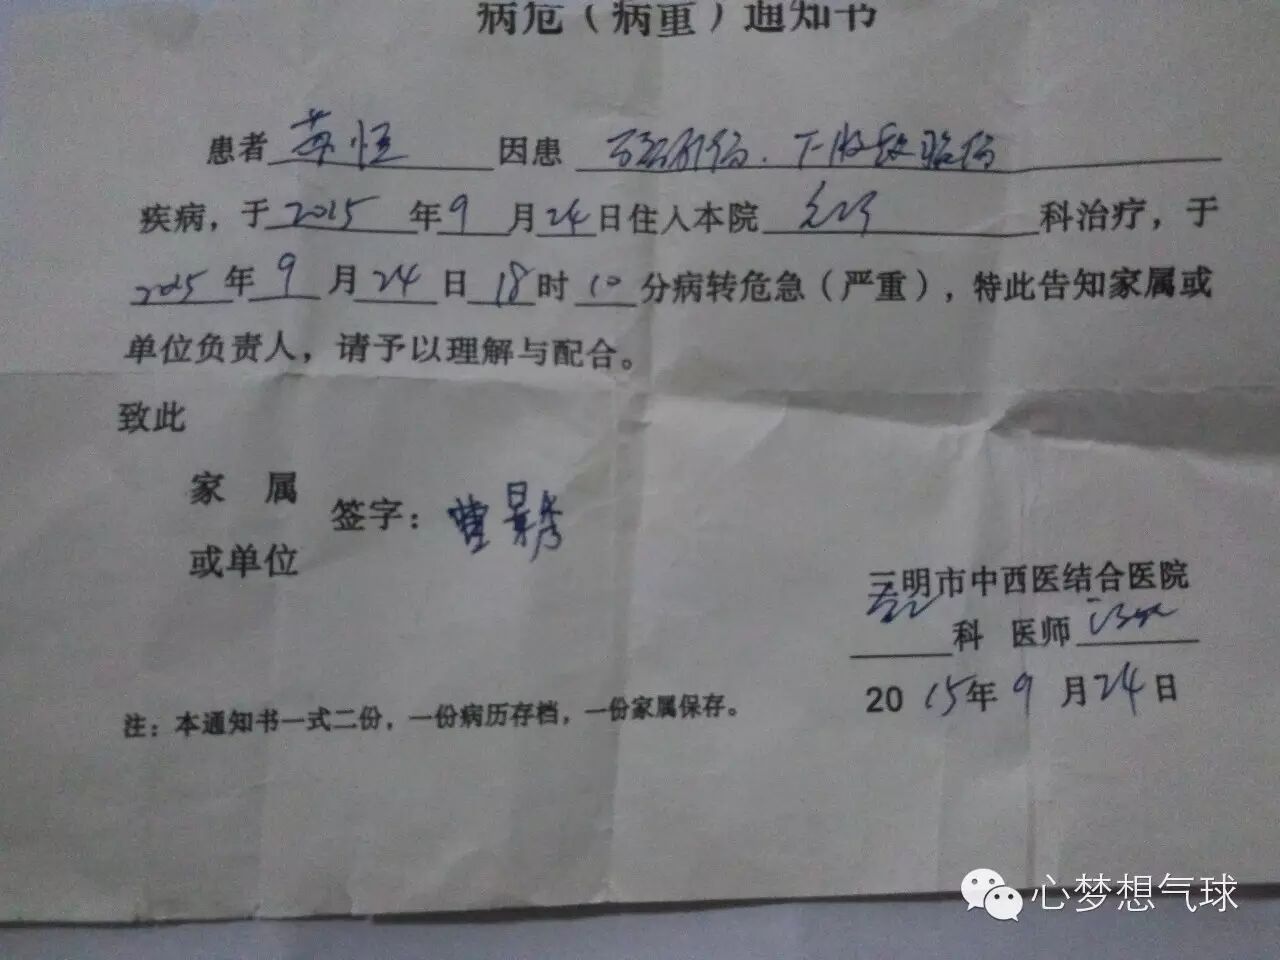 病危（病重）通知书
患者 恒 因患
疾病，于2015年9月24日住入本院 科治疗，于
2015年9月24日18时10分病转危急（严重），特此告知家属或
单位负责人，请予以理解与配合。
致此
家 属
或单位
签字：曾景秀
三明市中西医结合医院
科 医师
2015年9月24日
注：本通知书一式二份，一份病历存档，一份家属保存。
心梦想气球